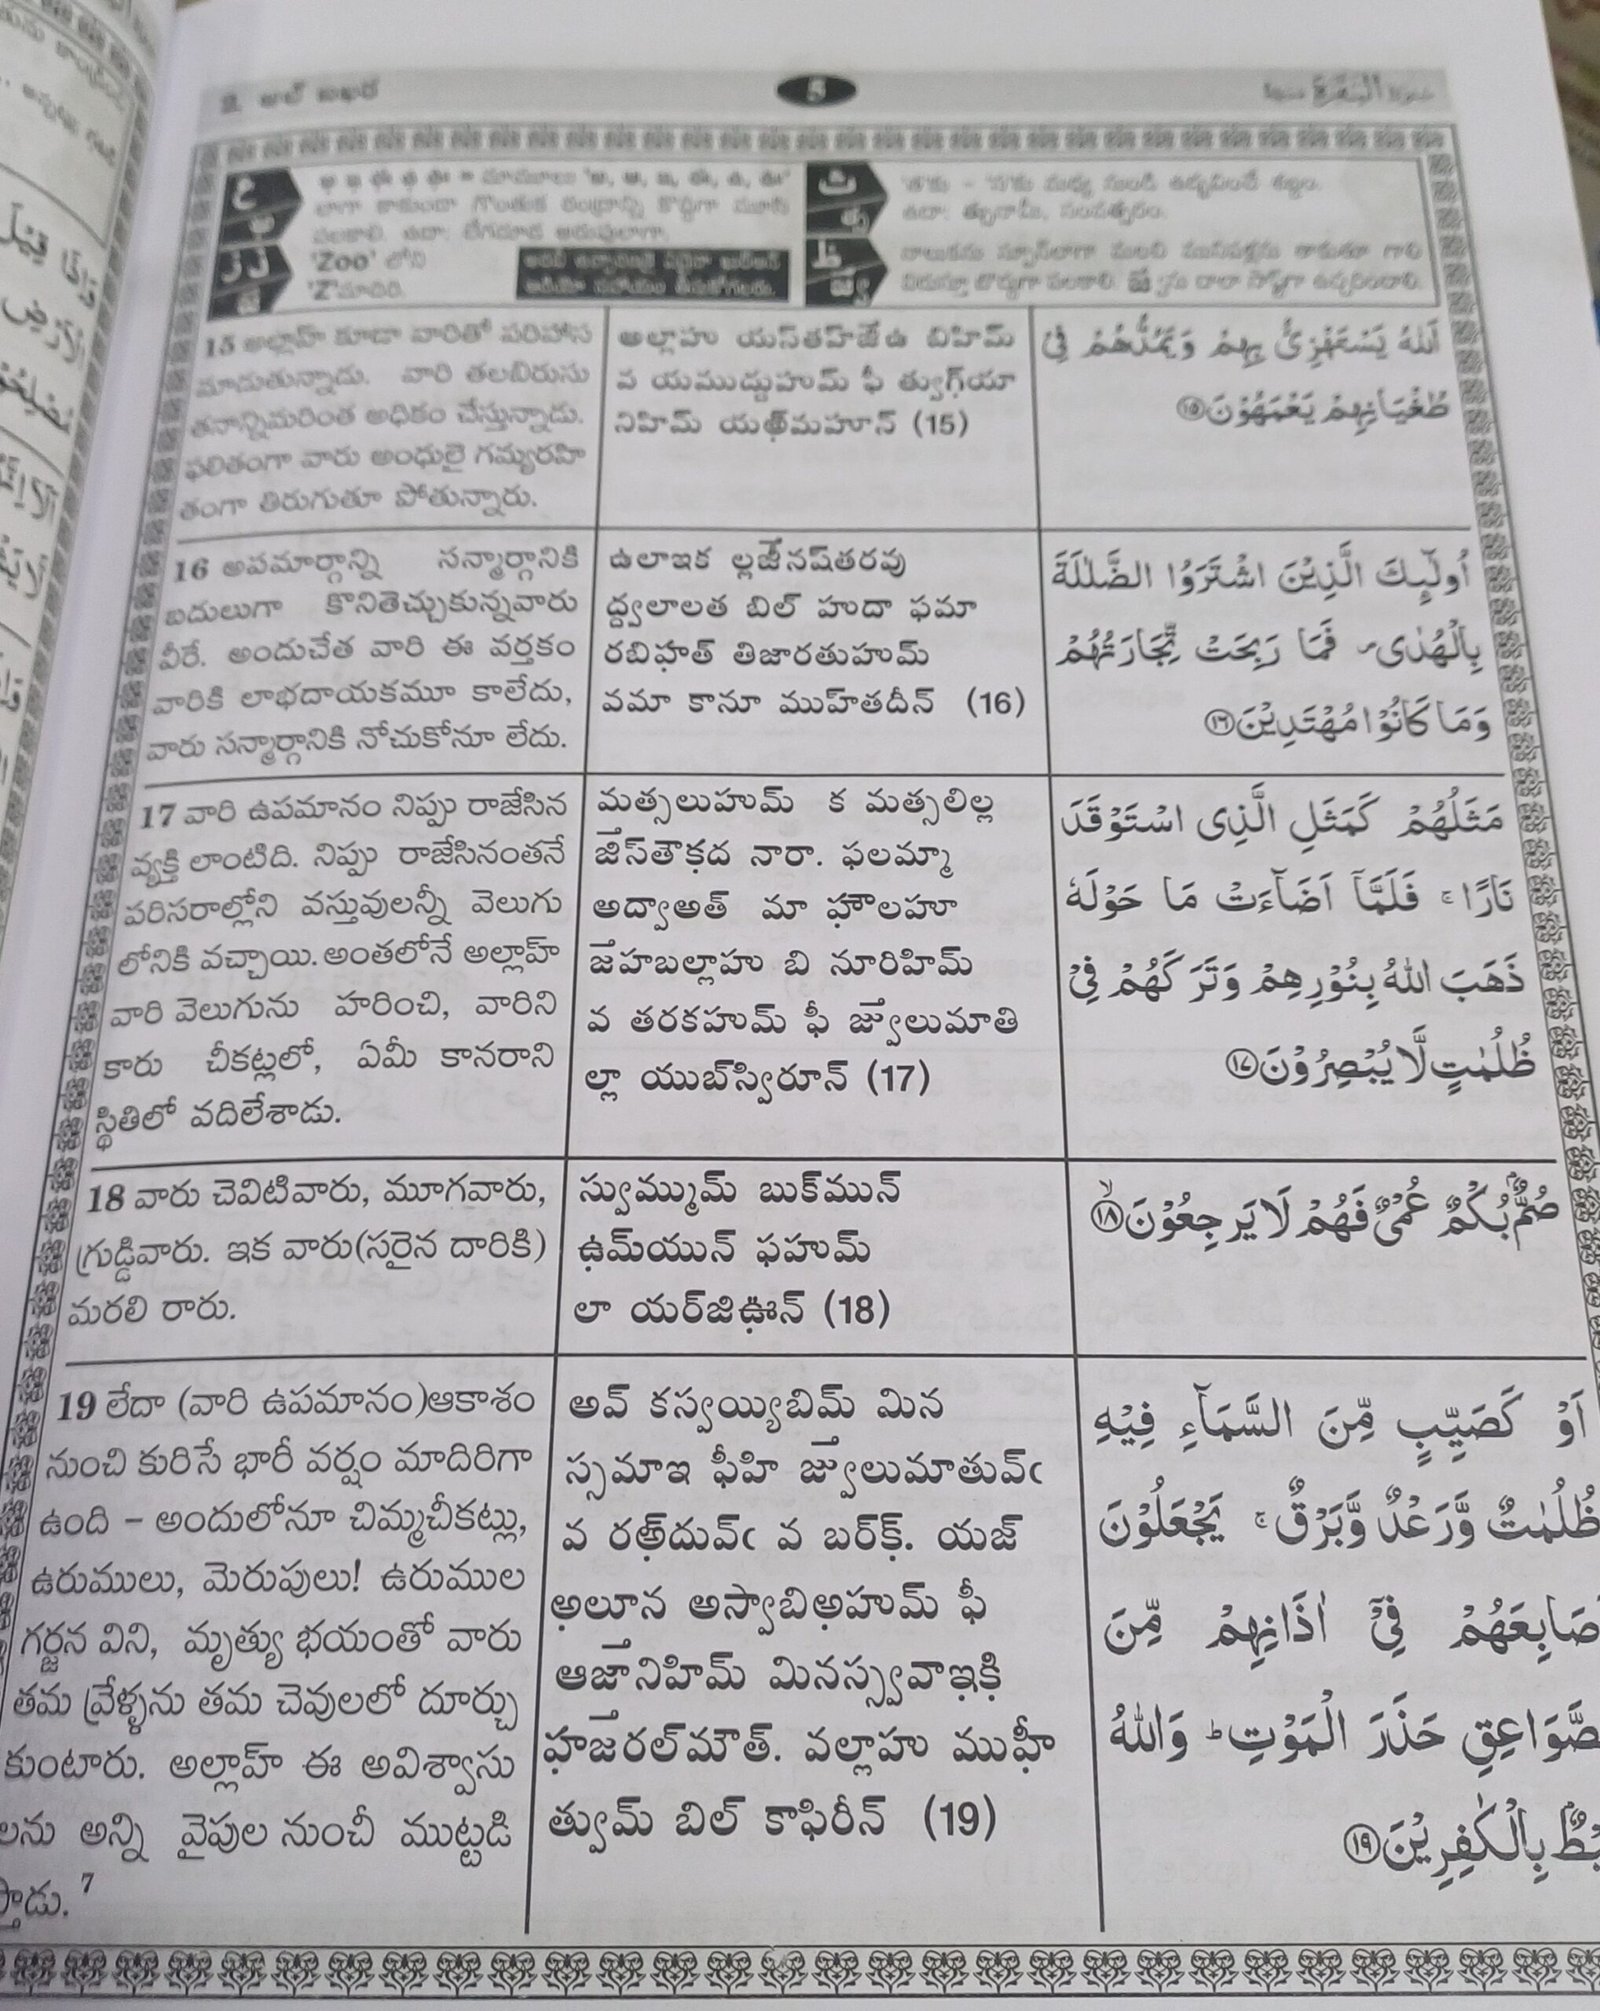 2. అల్ బఖర
5
'Zoo' లోని
'Z' మాదిరి.
15 అల్లాహ్ కూడా వారితో పరిహాస
మాడుతున్నాడు. వారి తలబిరుసు
తనాన్నిమరింత అధికం చేస్తున్నాడు.
ఫలితంగా వారు అంధులై గమ్యరహి
తంగా తిరుగుతూ పోతున్నారు.
అల్లాహు యస్‌తహ్‌జేఉ బిహిమ్
వ యముద్దుహుమ్ ఫీ త్వుగ్‌యా
నిహిమ్ యఅ్‌మహూన్ (15)
اَللّٰهُ يَسْتَهْزِئُ بِهِمْ وَيَمُدُّهُمْ فِيْ
طُغْيَانِهِمْ يَعْمَهُوْنَ ١٥
16 అపమార్గాన్ని సన్మార్గానికి
బదులుగా కొనితెచ్చుకున్నవారు
వీరే. అందుచేత వారి ఈ వర్తకం
వారికి లాభదాయకమూ కాలేదు,
వారు సన్మార్గానికి నోచుకోనూ లేదు.
ఉలాఇక ల్లజీనష్‌తరవు
ద్ద్వలాలత బిల్ హుదా ఫమా
రబిహత్ తిజారతుహుమ్
వమా కానూ ముహ్‌తదీన్ (16)
اُولٰٓئِكَ الَّذِيْنَ اشْتَرَوُا الضَّلٰلَةَ
بِالْهُدٰى فَمَا رَبِحَتْ تِّجَارَتُهُمْ
وَمَا كَانُوْا مُهْتَدِيْنَ ١٦
17 వారి ఉపమానం నిప్పు రాజేసిన
వ్యక్తి లాంటిది. నిప్పు రాజేసినంతనే
పరిసరాల్లోని వస్తువులన్నీ వెలుగు
లోనికి వచ్చాయి. అంతలోనే అల్లాహ్
వారి వెలుగును హరించి, వారిని
కారు చీకట్లలో, ఏమీ కానరాని
స్థితిలో వదిలేశాడు.
మత్సలుహుమ్ క మత్సలిల్ల
జిస్‌తౌకద నారా. ఫలమ్మా
అద్వాఅత్ మా హౌలహూ
జెహబల్లాహు బి నూరిహిమ్
వ తరకహుమ్ ఫీ జ్వులుమాతి
ల్లా యుబ్‌స్విరూన్ (17)
مَثَلُهُمْ كَمَثَلِ الَّذِى اسْتَوْقَدَ
نَارًا ۚ فَلَمَّآ اَضَآءَتْ مَا حَوْلَهٗ
ذَهَبَ اللّٰهُ بِنُوْرِهِمْ وَتَرَكَهُمْ فِيْ
ظُلُمٰتٍ لَّا يُبْصِرُوْنَ ١٧
18 వారు చెవిటివారు, మూగవారు,
గ్రుడ్డివారు. ఇక వారు(సరైన దారికి)
మరలి రారు.
స్వుమ్ముమ్ బుక్‌మున్
ఉమ్‌యున్ ఫహుమ్
లా యర్‌జిఊన్ (18)
صُمٌّۢ بُكْمٌ عُمْىٌ فَهُمْ لَا يَرْجِعُوْنَ ۙ ١٨
19 లేదా (వారి ఉపమానం)ఆకాశం
నుంచి కురిసే భారీ వర్షం మాదిరిగా
ఉంది – అందులోనూ చిమ్మచీకట్లు,
ఉరుములు, మెరుపులు! ఉరుముల
గర్జన విని, మృత్యు భయంతో వారు
తమ వ్రేళ్ళను తమ చెవులలో దూర్చు
కుంటారు. అల్లాహ్ ఈ అవిశ్వాసు
లను అన్ని వైపుల నుంచీ ముట్టడి
స్తాడు. 7
అవ్ కస్వయ్యిబిమ్ మిన
స్సమాఇ ఫీహి జ్వులుమాతువ్ఁ
వ రఅ్‌దువ్ఁ వ బర్‌క్. యజ్
అలూన అస్వాబిఅహుమ్ ఫీ
ఆజానిహిమ్ మినస్స్వవాఇకి
హజరల్‌మౌత్. వల్లాహు ముహీ
త్వుమ్ బిల్ కాఫిరీన్ (19)
اَوْ كَصَيِّبٍ مِّنَ السَّمَآءِ فِيْهِ
ظُلُمٰتٌ وَّرَعْدٌ وَّبَرْقٌ ۚ يَجْعَلُوْنَ
صَابِعَهُمْ فِيْٓ اٰذَانِهِمْ مِّنَ
صَّوَاعِقِ حَذَرَ الْمَوْتِ ؕ وَاللّٰهُ
يْطٌۢ بِالْكٰفِرِيْنَ ١٩